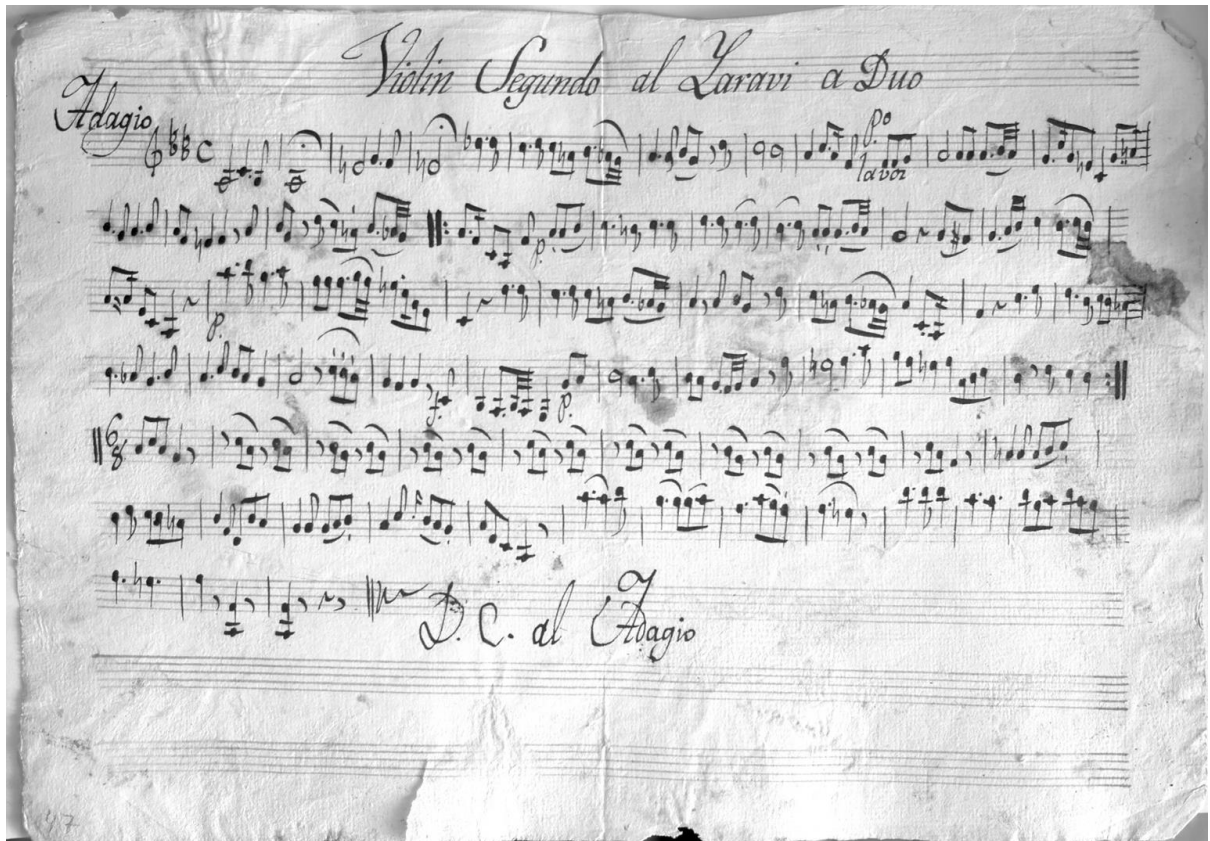 Violin Segundo al Yaravi a Duo
Adagio
C
po
lavoz
p.
p.
f.
p.
6/8
D. C. al Adagio
47